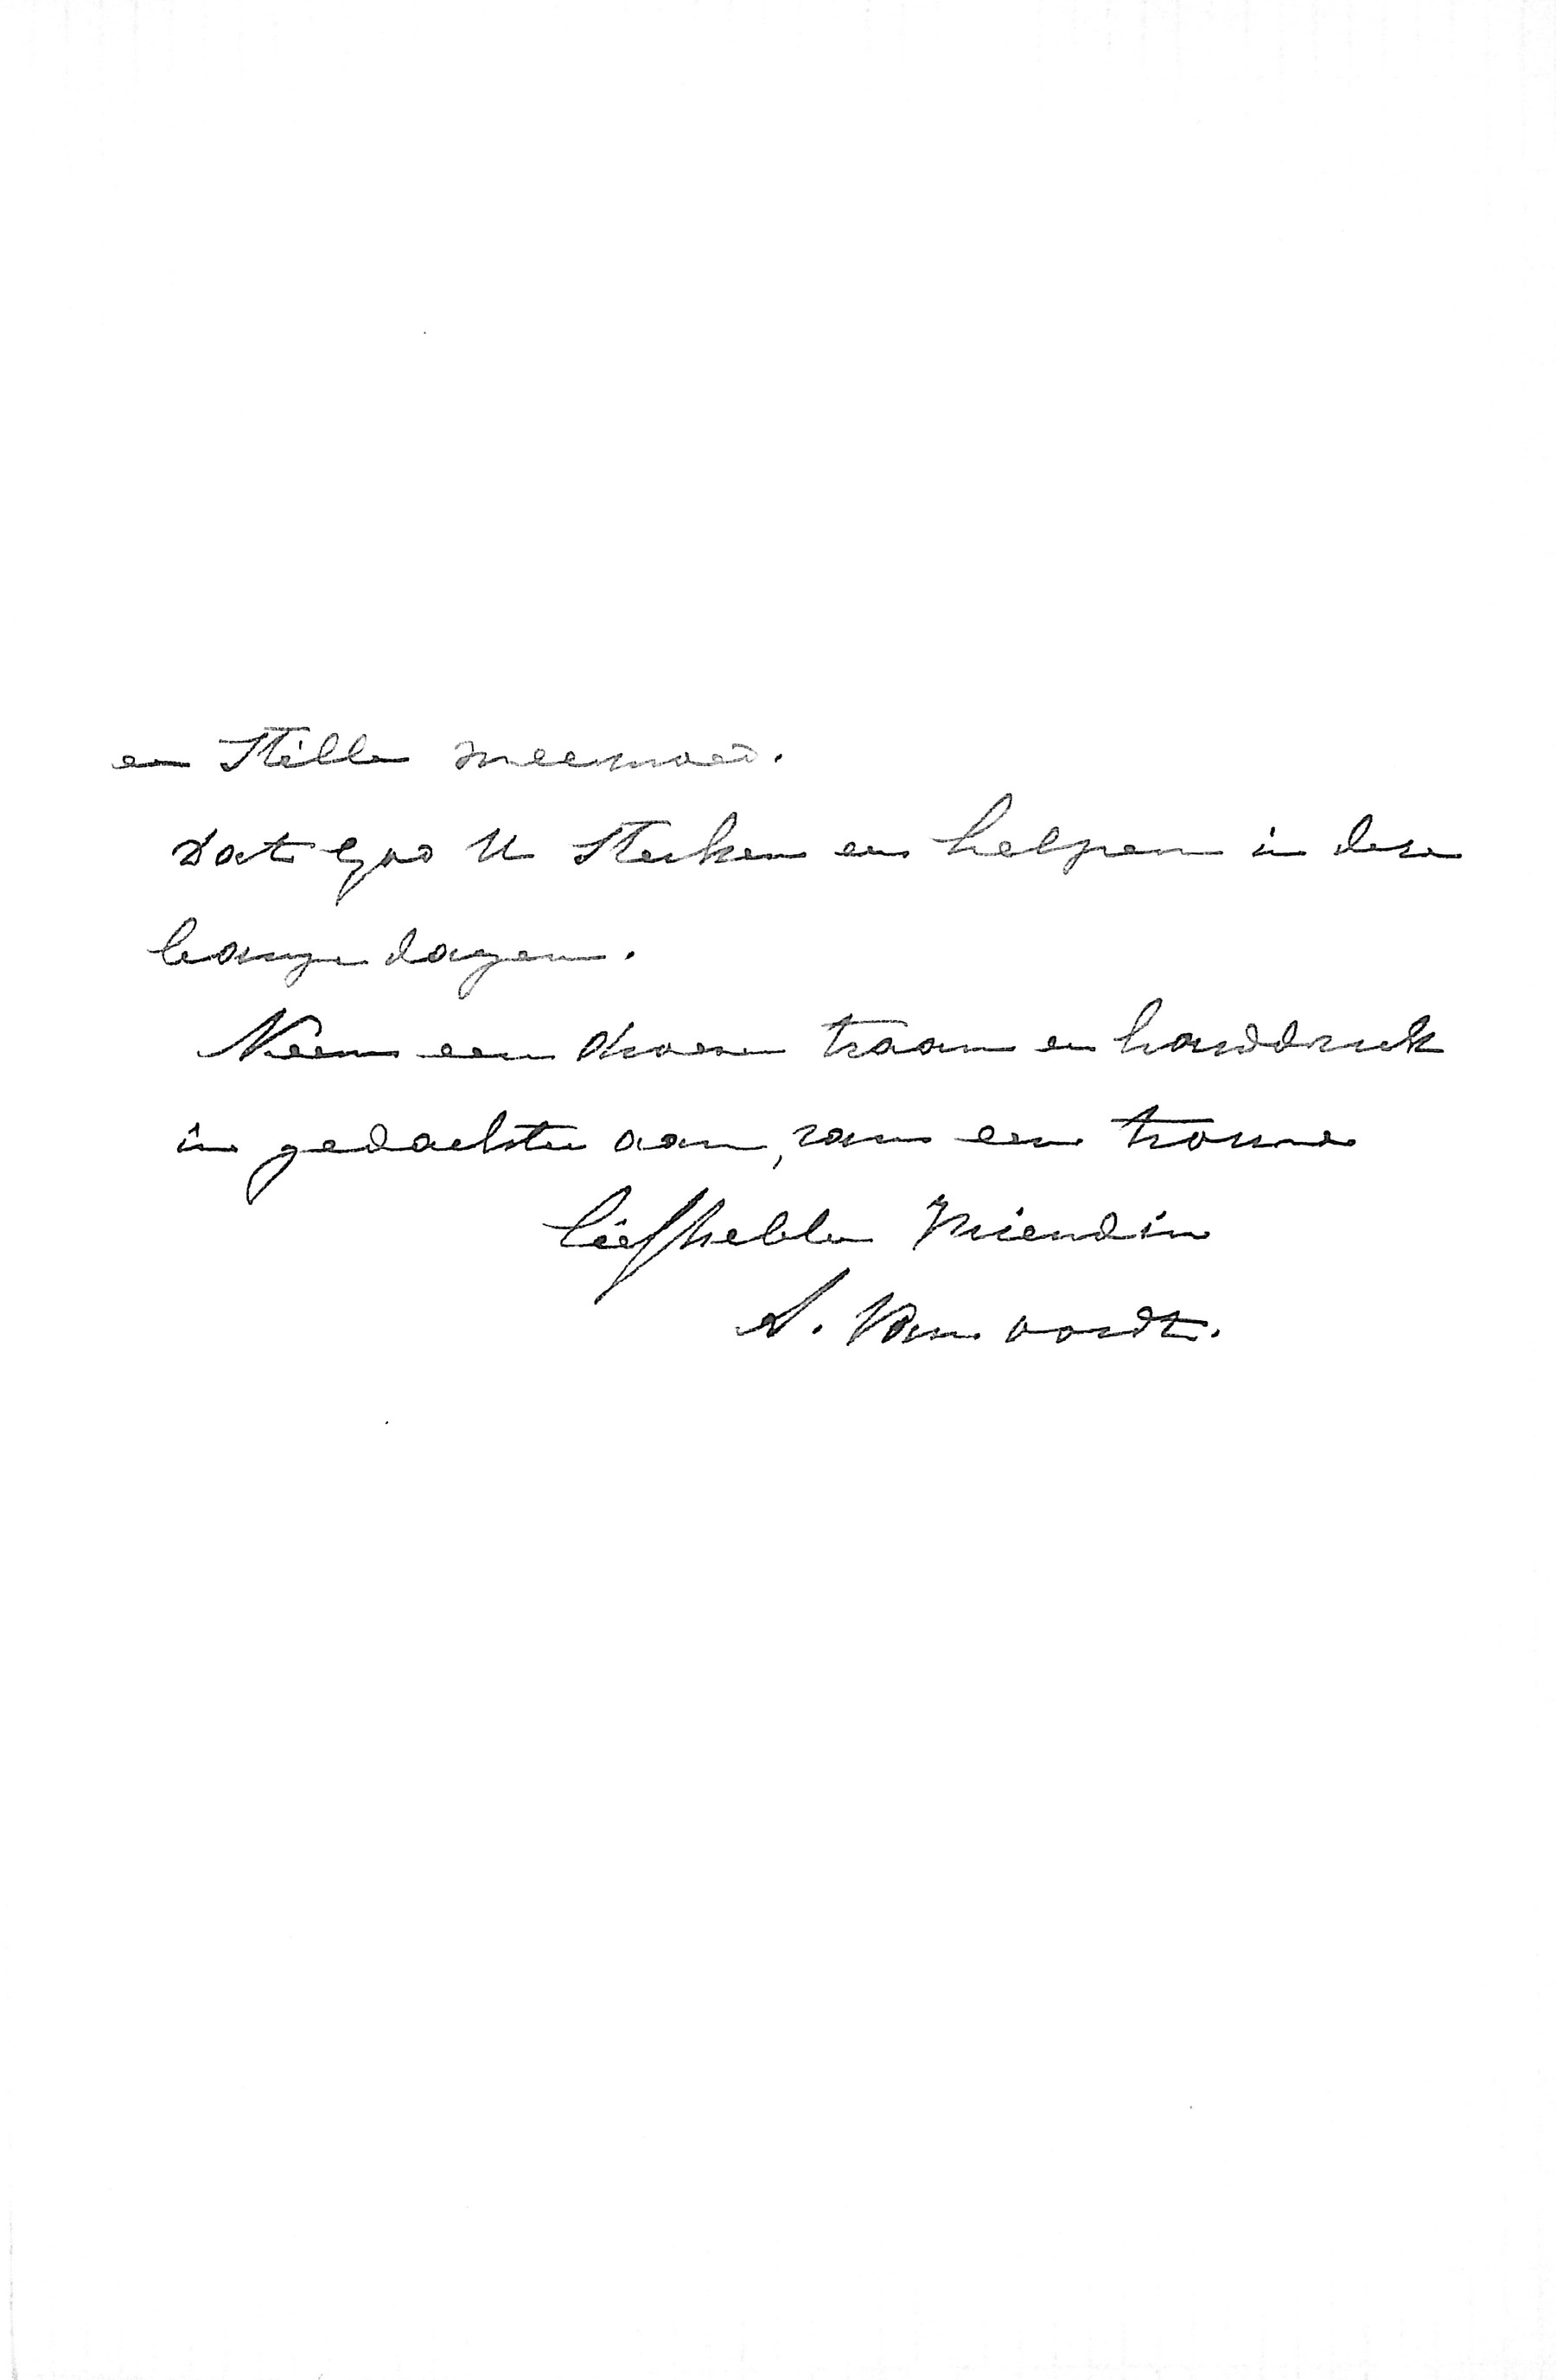 en Stille weemoed.
Dat God U Sterken en helpen in deze
bange dagen.
Neem een droeve traan en handdruk
in gedachten aan, van een trouwe
liefhebbe Vriendin
A. Van oordt.